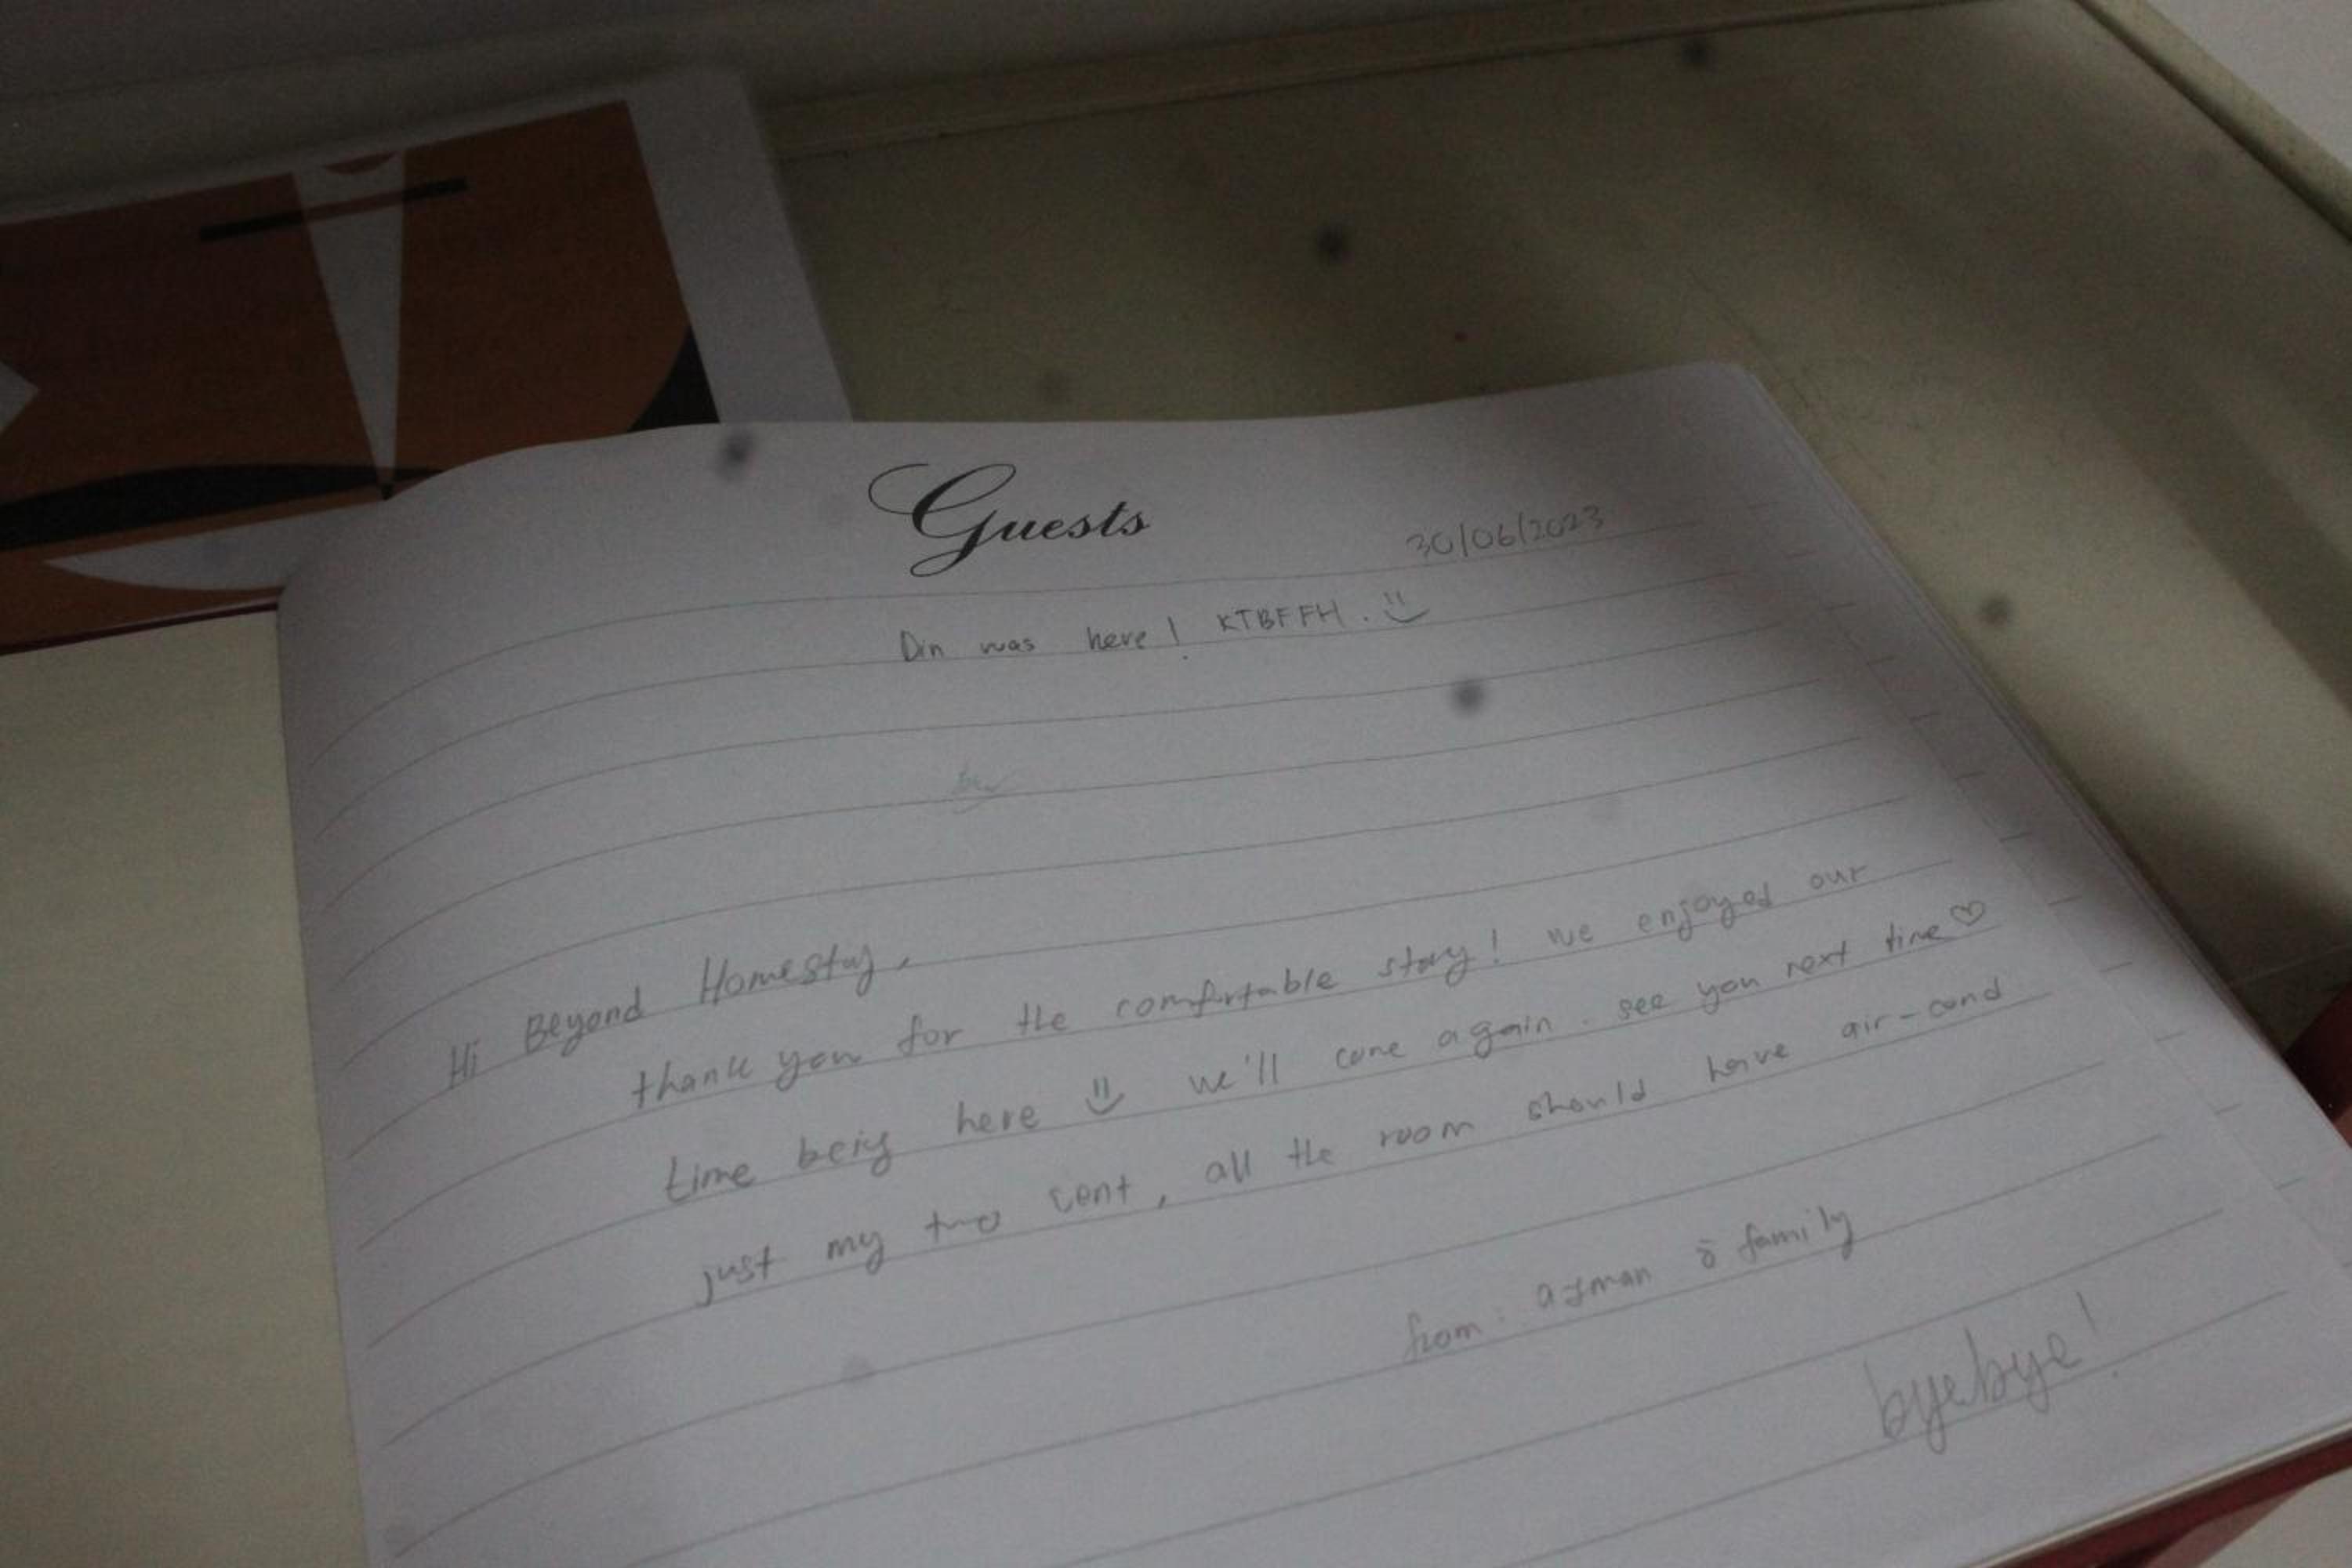 Guests
30/06/2023
Din was here! KTBFFH. :)
Hi Beyond Homestay,
thank you for the comfortable stay! we enjoyed our
time being here :) we'll come again. see you next time ♡
just my two cent, all the room should have air-cond
from: ayman & family
byebye!